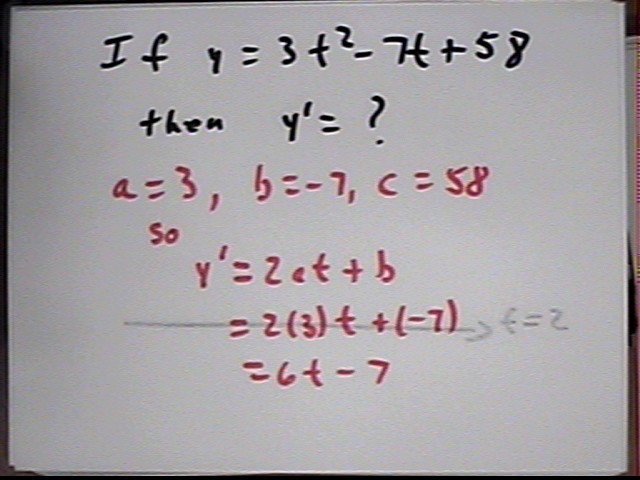 If y = 3t² - 7t + 58
then y' = ?
a = 3, b = -7, c = 58
so
y' = 2at + b
= 2(3)t + (-7)
t = 2
= 6t - 7